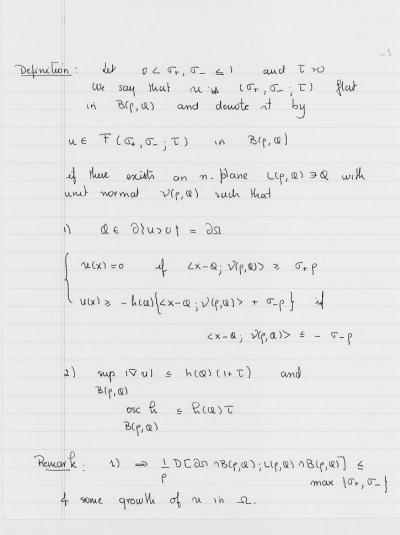 Definition: Let 0 < σ₊, σ₋ ≤ 1 and τ > 0
We say that u is (σ₊, σ₋; τ) flat
in B(ρ,Q) and denote it by
u ∈ F(σ₊, σ₋; τ) in B(ρ,Q)
if there exists an n-plane L(ρ,Q) ∋ Q with
unit normal ν(ρ,Q) such that
1) Q ∈ ∂{u>0} = ∂Ω
u(x)=0 if <x-Q; ν(ρ,Q)> ≥ σ₊ρ
u(x) ≥ -h(Q){<x-Q; ν(ρ,Q)> + σ₋ρ} if
<x-Q; ν(ρ,Q)> ≤ - σ₋ρ
2) sup |∇u| ≤ h(Q)(1+τ) and
B(ρ,Q)
osc h ≤ h(Q)τ
B(ρ,Q)
Remark: 1) ⇒ 1/ρ D[∂Ω ∩ B(ρ,Q); L(ρ,Q) ∩ B(ρ,Q)] ≤
max {σ₊, σ₋}
& some growth of u in Ω.